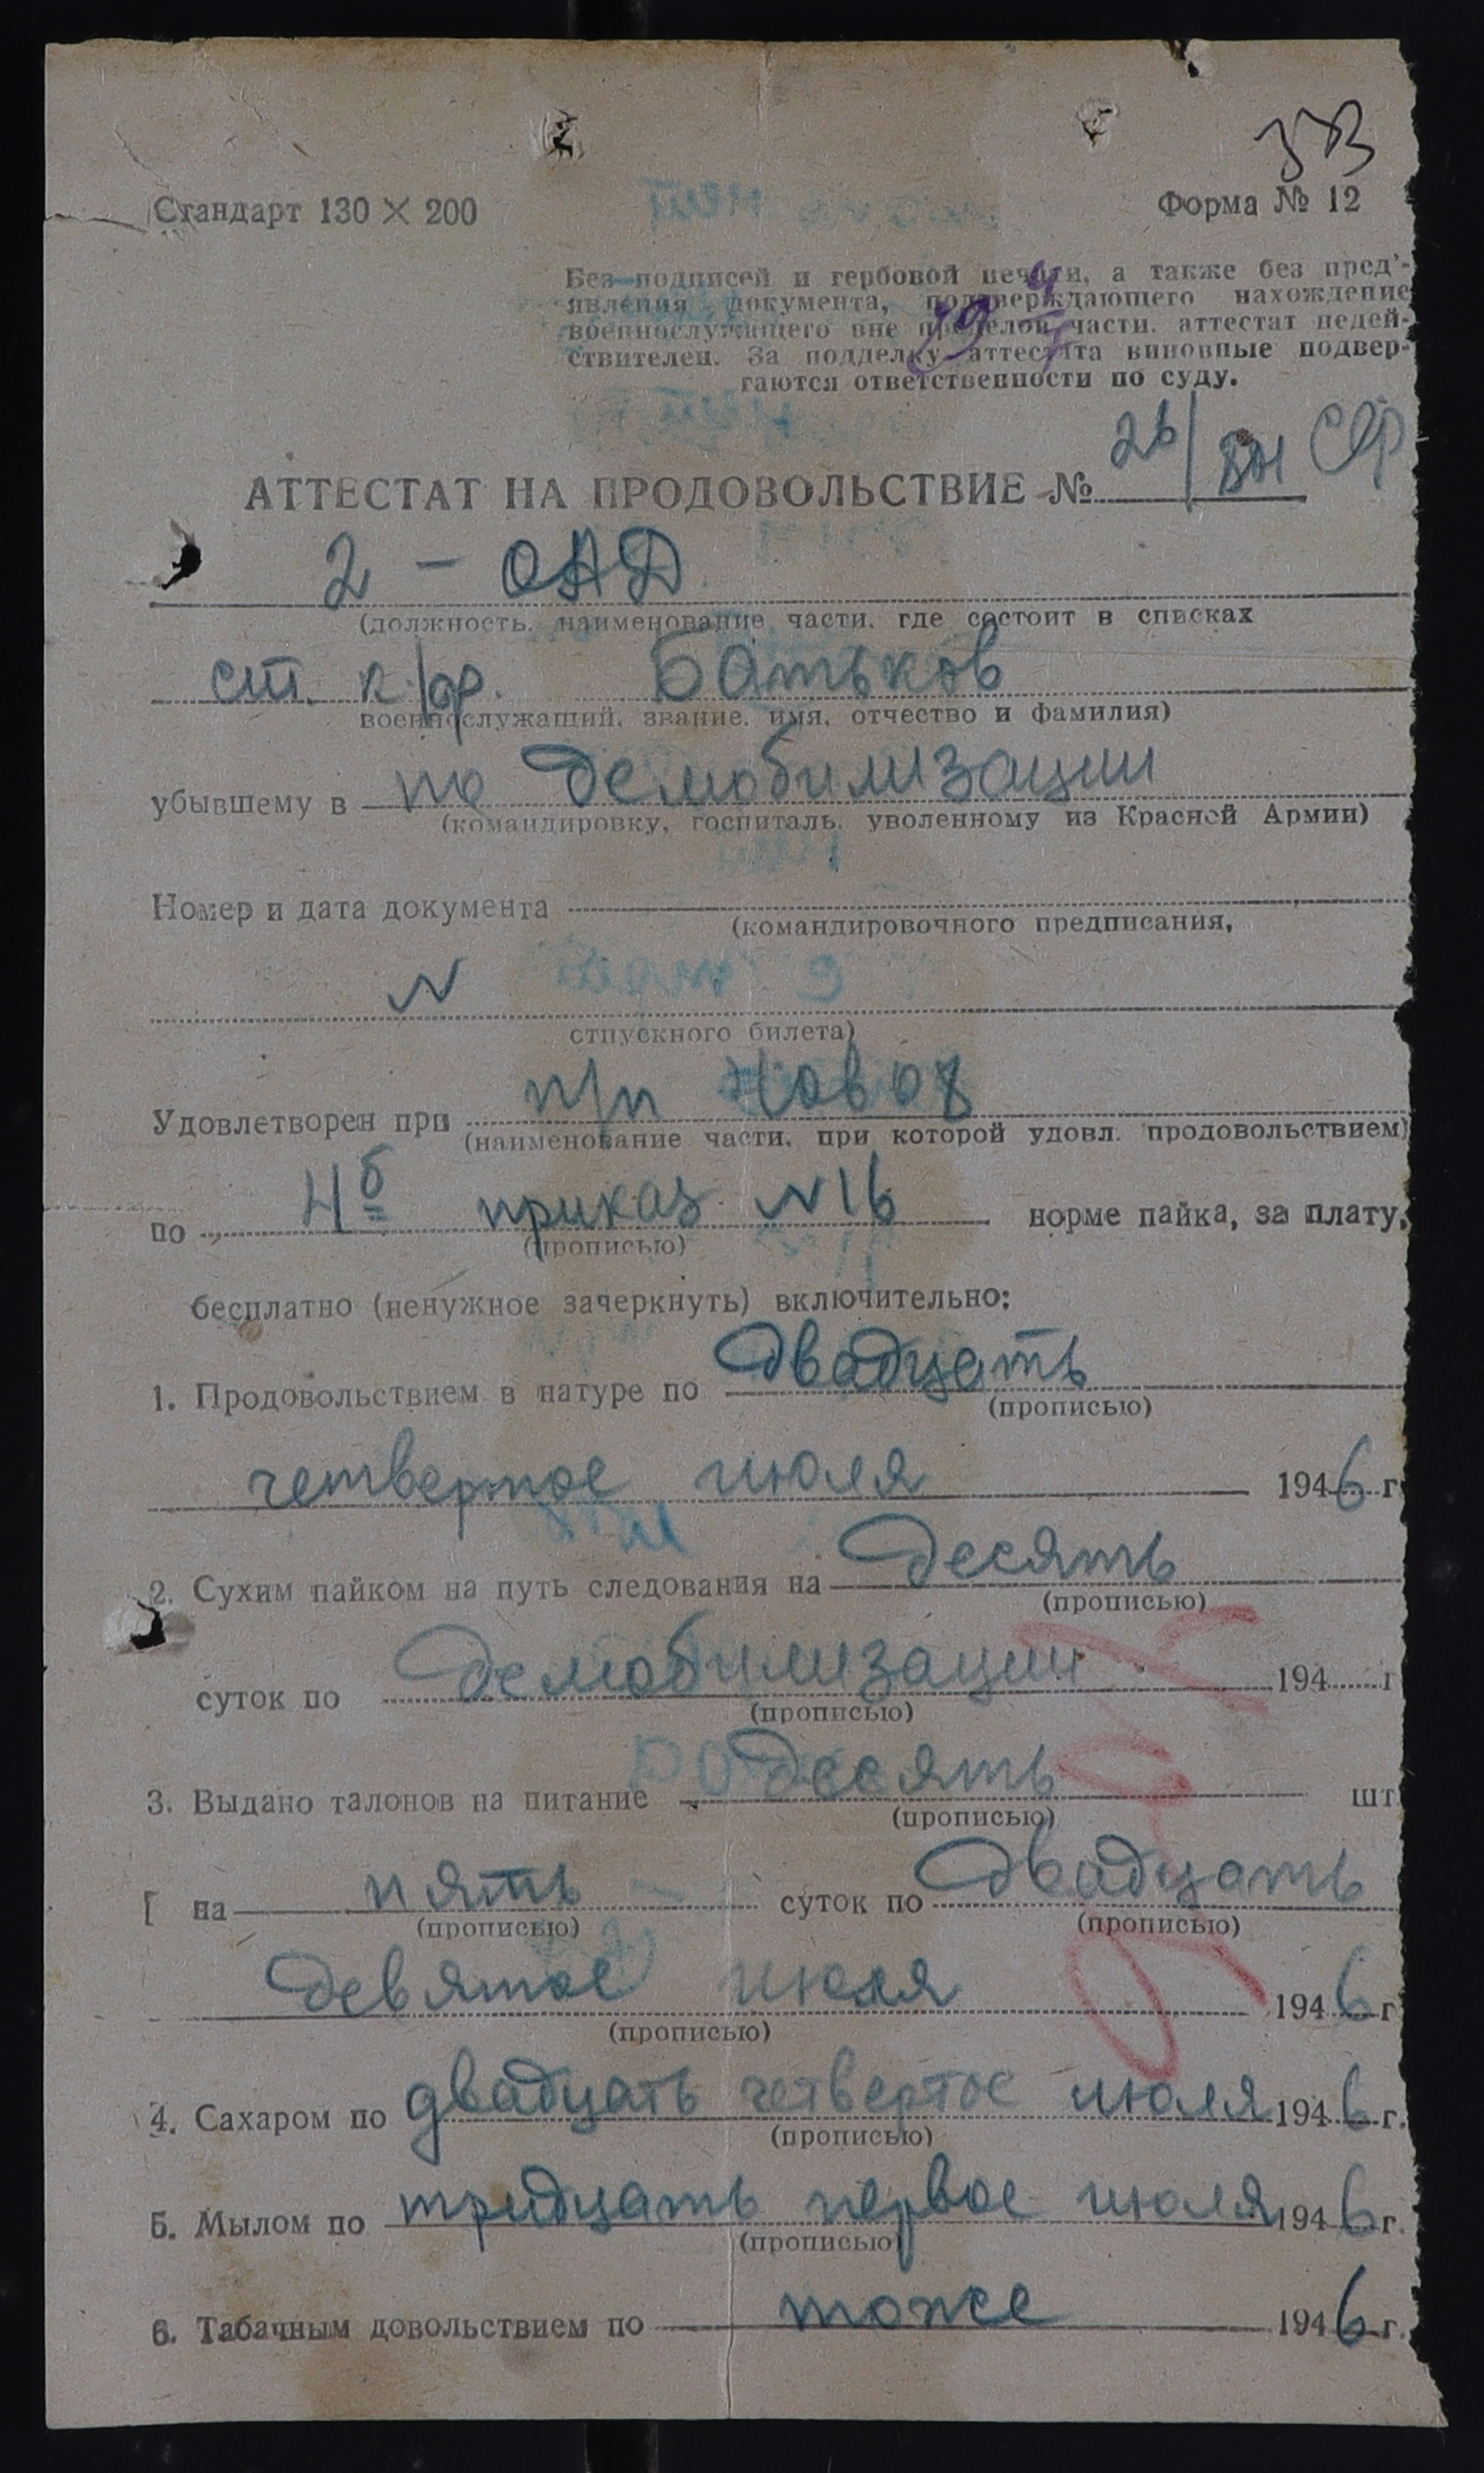 Стандарт 130 × 200
Форма № 12
Без подписей и гербовой печати, а также без пред'-
явления документа, подтверждающего нахождение
военнослужащего вне пределов части, аттестат недей-
ствителен. За подделку аттестата виновные подвер-
гаются ответственности по суду.
АТТЕСТАТ НА ПРОДОВОЛЬСТВИЕ №
2 - ОАД
(должность, наименование части, где состоит в списках
ст. к/ор. Батьков
военнослужащий, звание, имя, отчество и фамилия)
убывшему в по демобилизации
(командировку, госпиталь, уволенному из Красной Армии)
Номер и дата документа
(командировочного предписания,
N
отпускного билета)
Удовлетворен при п/п
(наименование части, при которой удовл. продовольствием)
по 4б приказ N 16 норме пайка, за плату,
(прописью)
бесплатно (ненужное зачеркнуть) включительно:
1. Продовольствием в натуре по двадцать
(прописью)
четвертое июля 1946 г.
2. Сухим пайком на путь следования на десять
(прописью)
суток по демобилизации 194 г
(прописью)
3. Выдано талонов на питание десять шт
(прописью)
на пять суток по двадцать
(прописью) (прописью)
девятое июля 1946 г
(прописью)
4. Сахаром по двадцать четвертое июля 1946 г.
(прописью)
5. Мылом по тридцать первое июля 1946 г.
(прописью)
6. Табачным довольствием по тоже 1946 г.